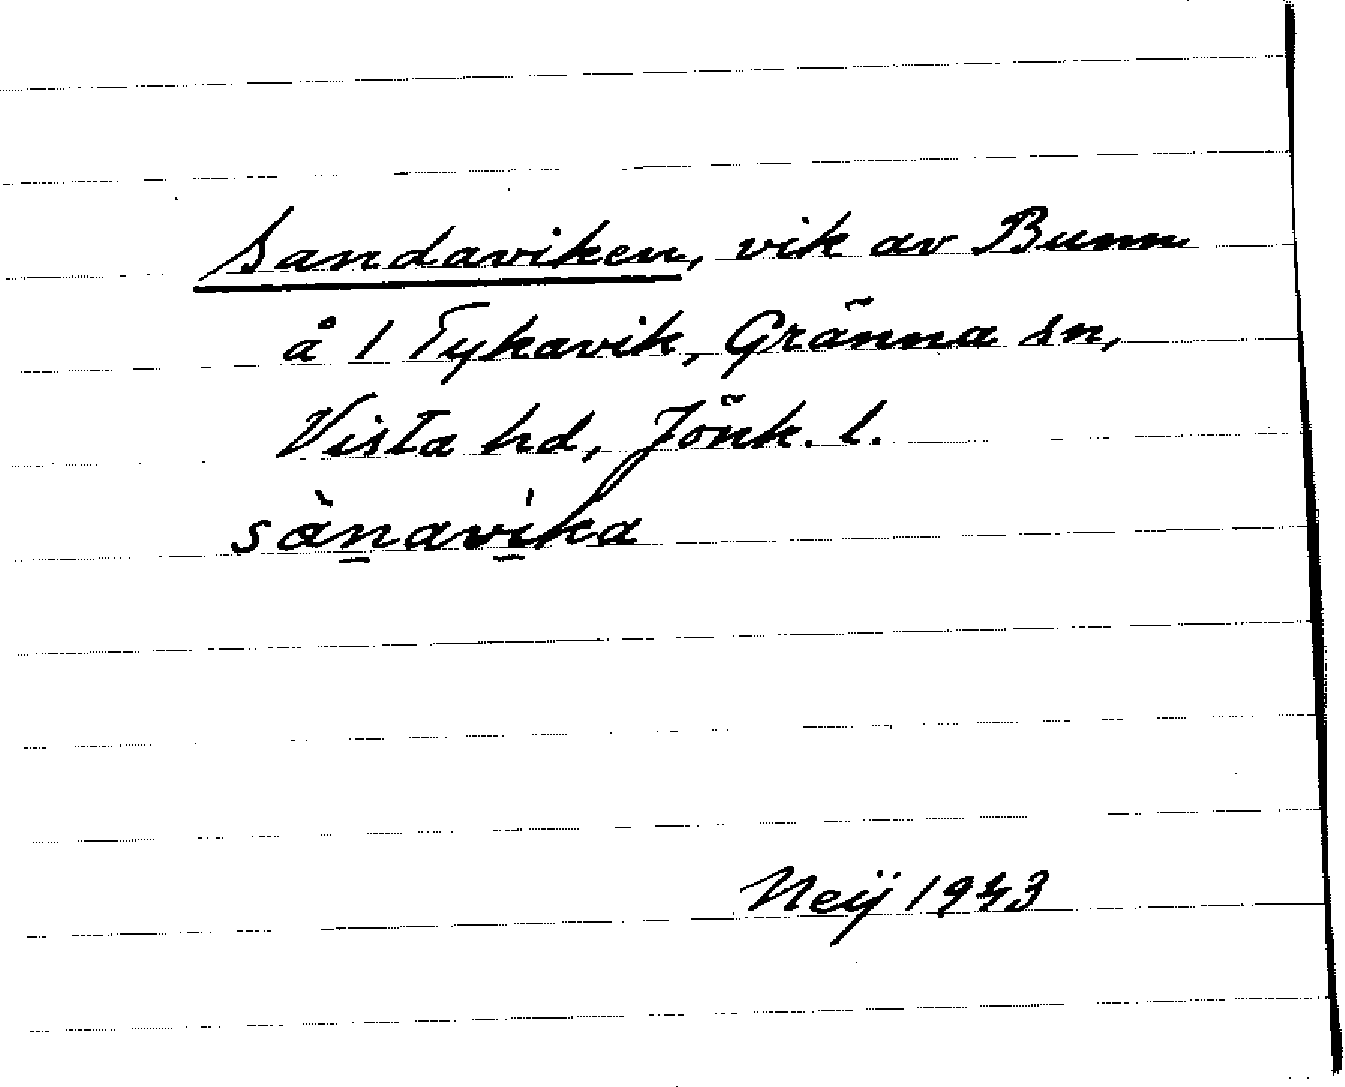 Sandaviken, vik av Bunn
å 1 Tykavik, Gränna sn,
Vista hd, Jönk. l.
sànavika
Neij 1943